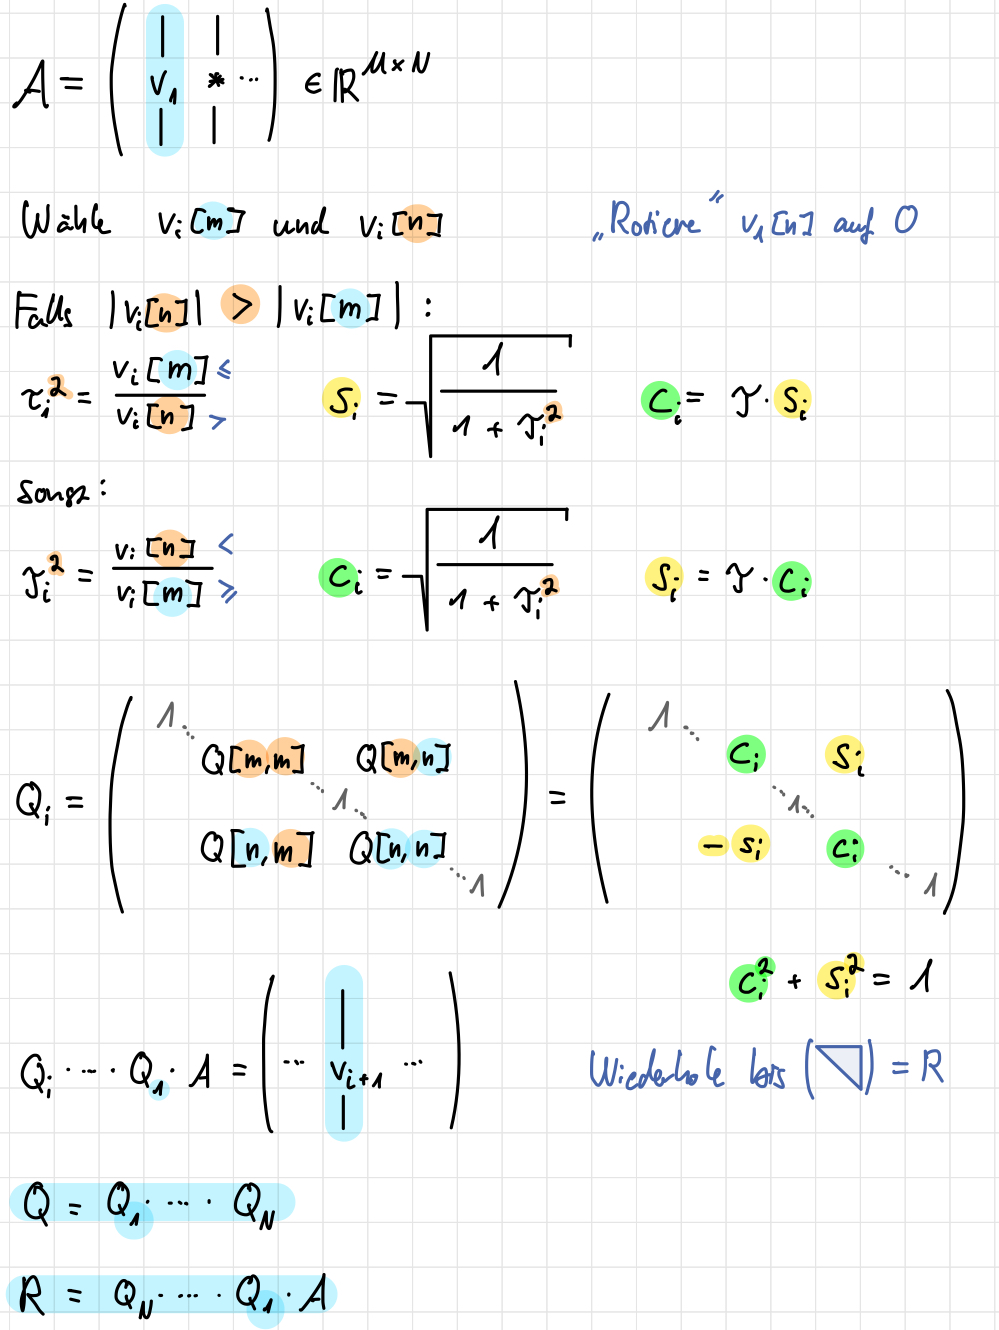 A = ( | | v₁ * ⋯ | | ) ∈ ℝ^{M×N}
Wähle vᵢ[m] und vᵢ[n] „Rotiere” v₁[n] auf 0
Falls |vᵢ[n]| > |vᵢ[m]| :
τᵢ² = vᵢ[m] ≤ / vᵢ[n] > sᵢ = √(1 / (1 + τᵢ²)) cᵢ = τ · sᵢ
Sonst:
τᵢ² = vᵢ[n] < / vᵢ[m] ≥ cᵢ = √(1 / (1 + τᵢ²)) sᵢ = τ · cᵢ
1 ⋱ 1 ⋱
Q[m,m] Q[m,n] cᵢ sᵢ
Qᵢ = ( ⋱ 1 ⋱ ) = ( ⋱ 1 ⋱ )
Q[n,m] Q[n,n] -sᵢ cᵢ
⋱ 1 ⋱ 1
cᵢ² + sᵢ² = 1
Qᵢ · ⋯ · Q₁ · A = ( ⋯ | vᵢ₊₁ | ⋯ ) Wiederhole bis ( ) = R
Q = Q₁ · ⋯ · Q_N
R = Q_N · ⋯ · Q₁ · A